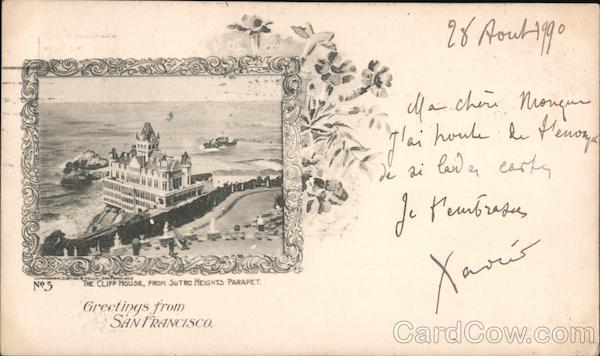 28 Aout 1990
Ma chère
J'ai honte de t'envoyer
de si laides cartes
Je t'embrasse
Xavier
No. 5
THE CLIFF HOUSE, FROM SUTRO HEIGHTS PARAPET.
Greetings from
SAN FRANCISCO.
CardCow.com